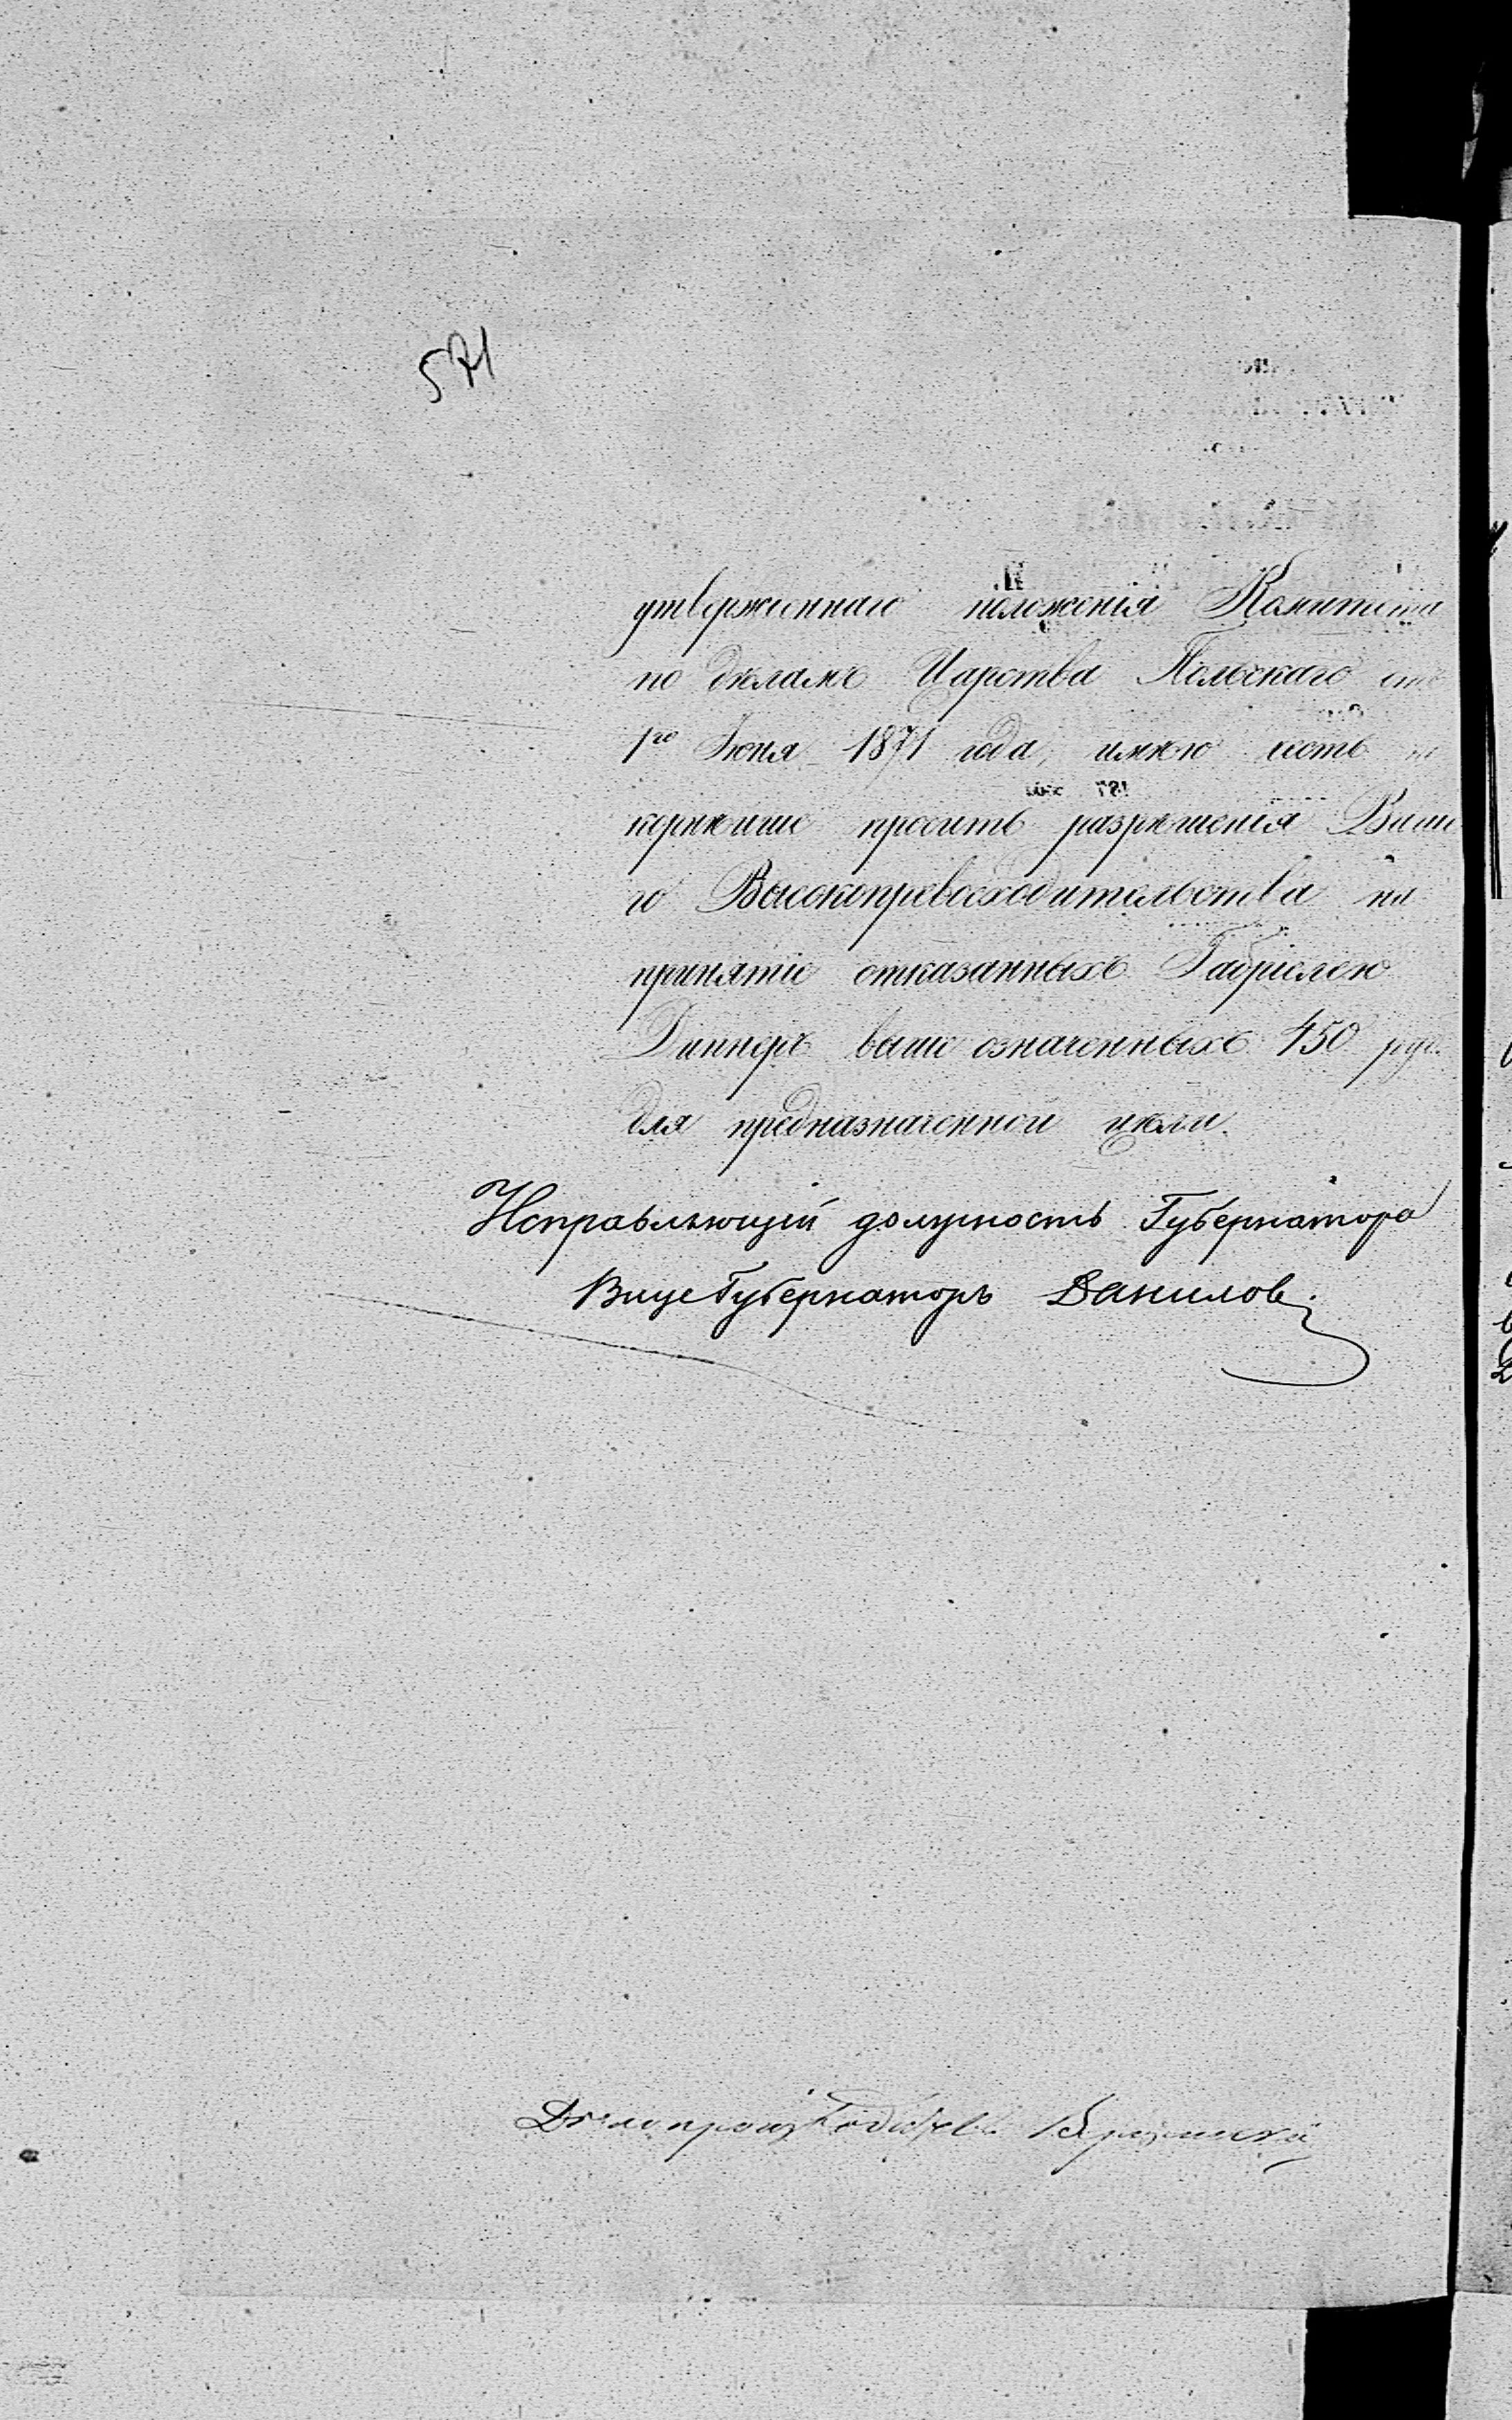 571
утвержденнаго положенія Комитета
по дѣламъ Царства Польскаго отъ
1го Іюня 1871 года, имѣю честь по
корнѣише просить разрѣшенія Ваше
го Высокопревосходительства на
принятіе отказанныхъ Габріелею
Диннеръ выше означенныхъ 450 руб.
для предназначенной цѣли.
Исправляющій должность Губернатора
Вице Губернаторъ Данилов
Дѣлопроизводитель